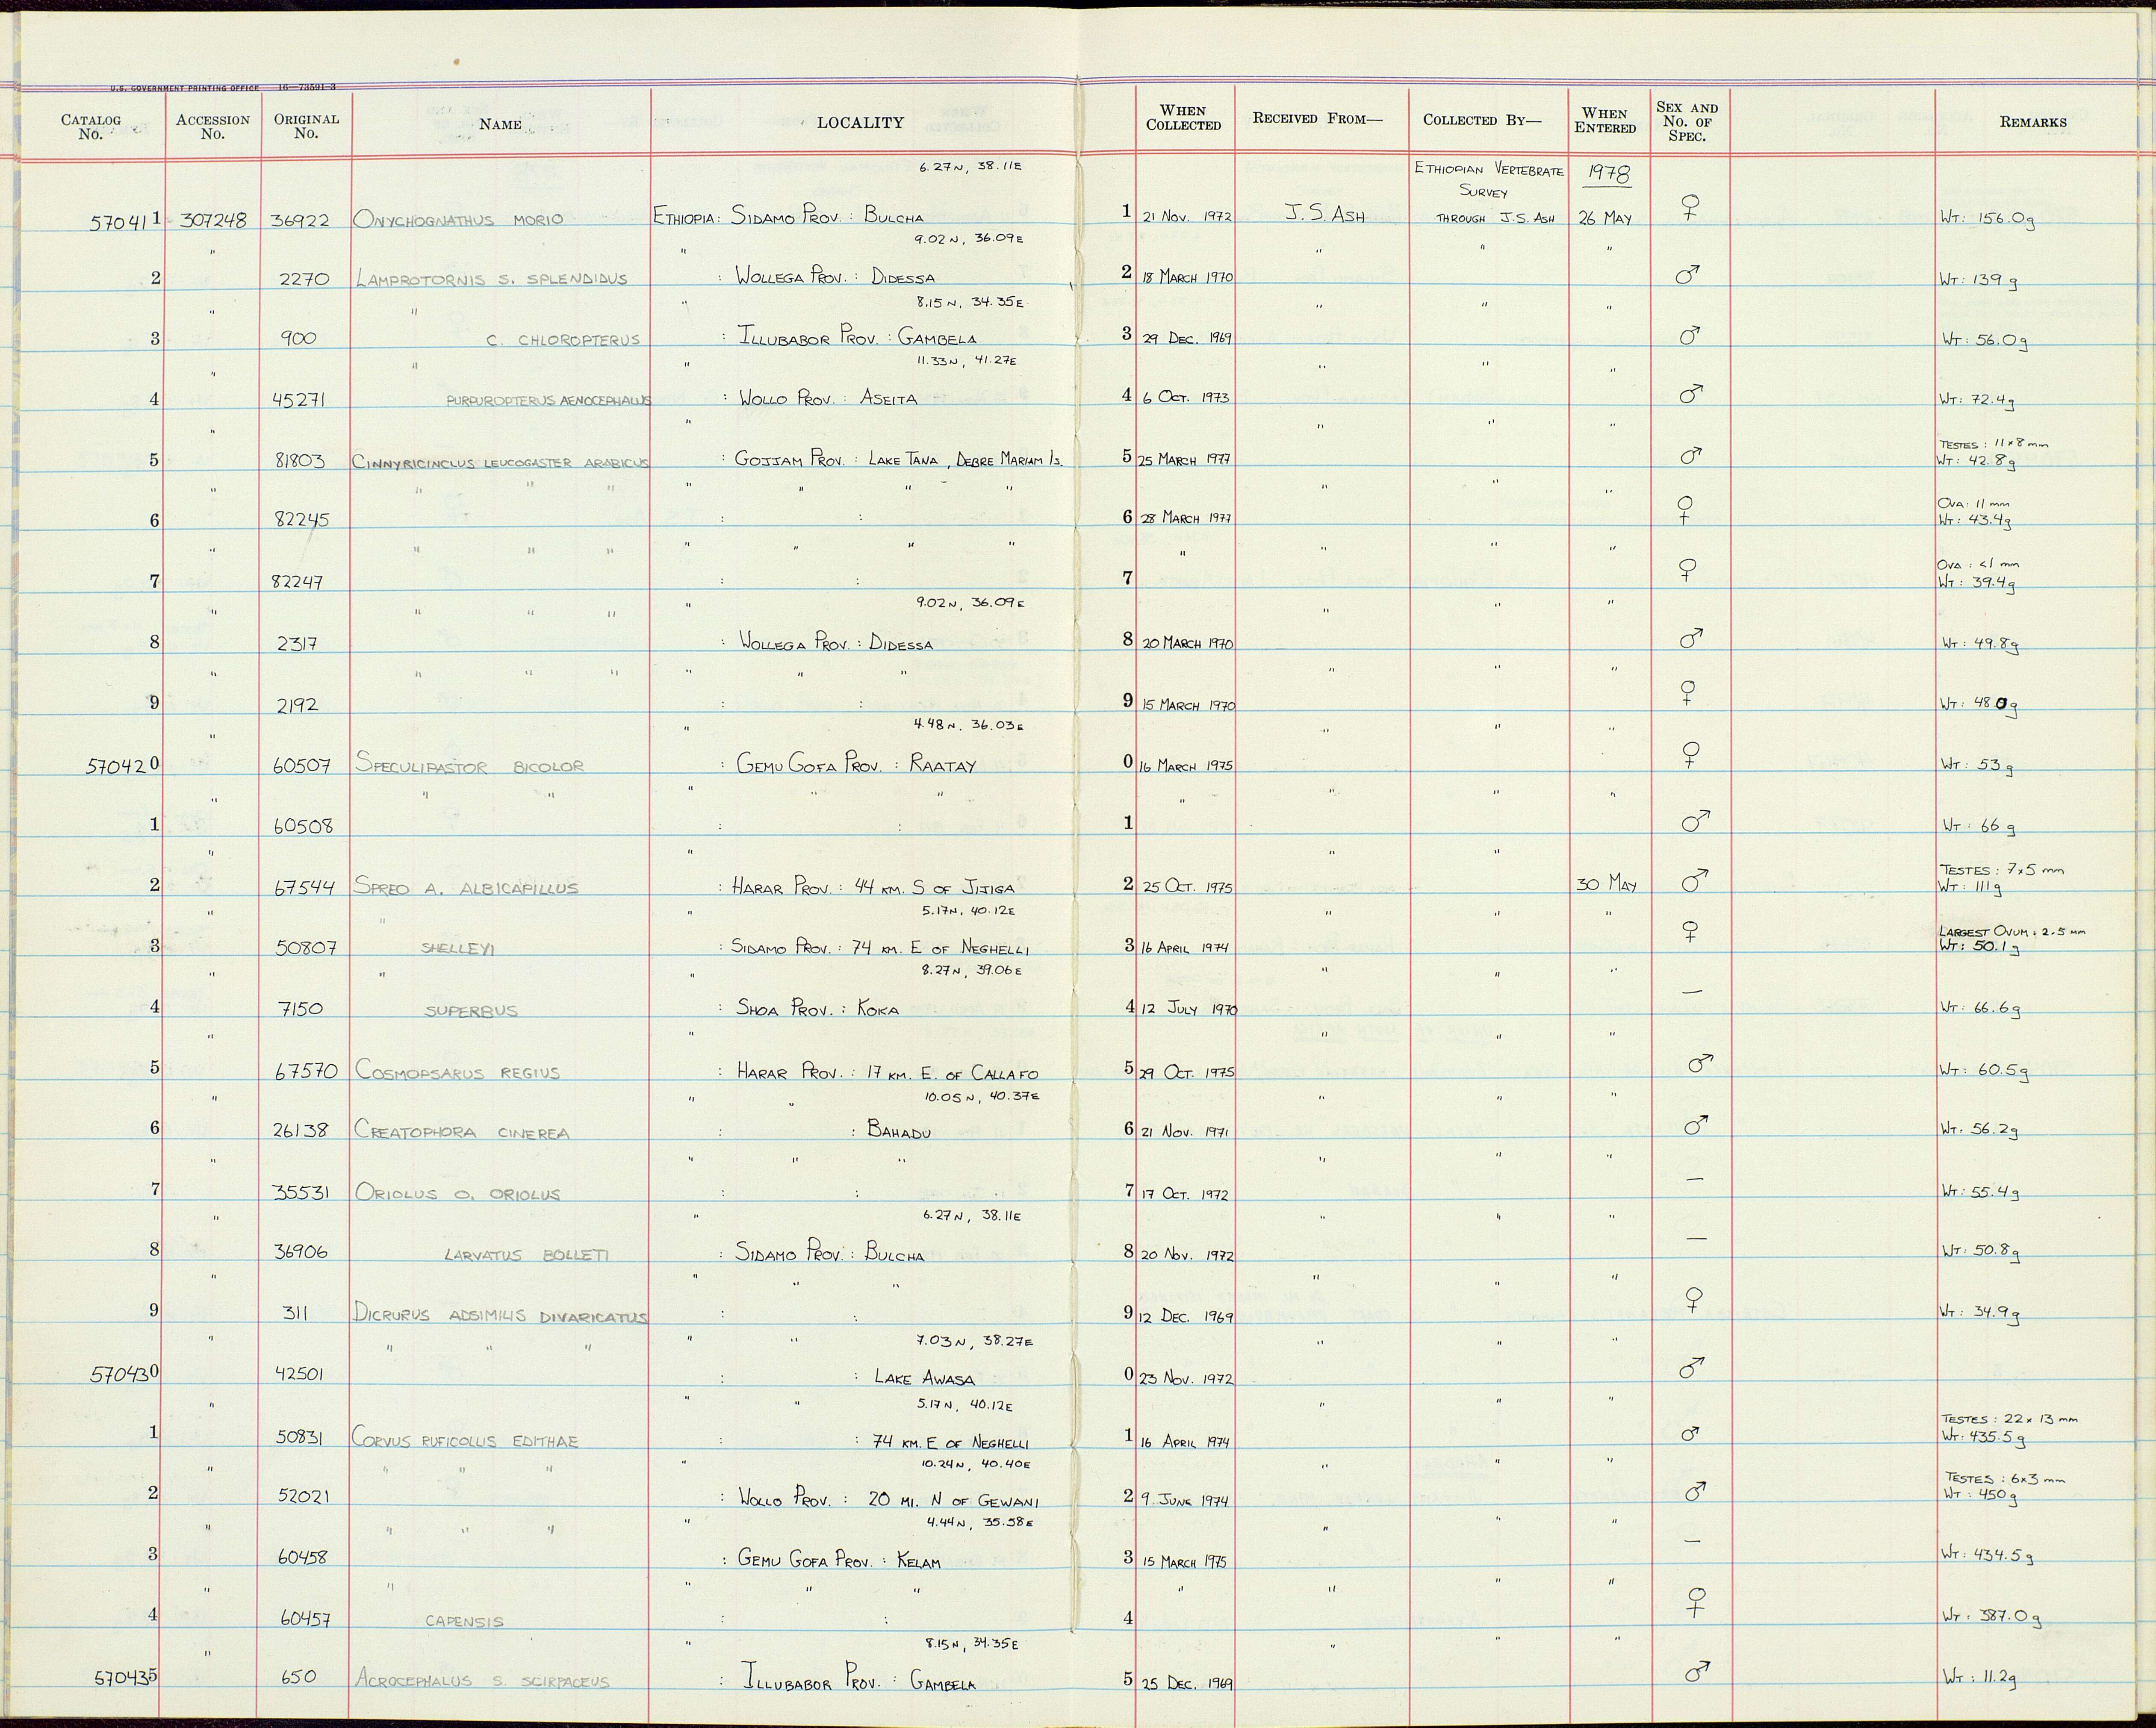 U.S. GOVERNMENT PRINTING OFFICE 16—73591-3
CATALOG No. ACCESSION No. ORIGINAL No. NAME LOCALITY WHEN COLLECTED RECEIVED FROM— COLLECTED BY— WHEN ENTERED SEX AND No. OF SPEC. REMARKS
6.27N, 38.11E ETHIOPIAN VERTEBRATE SURVEY 1978
570411 307248 36922 ONYCHOGNATHUS MORIO ETHIOPIA: SIDAMO PROV.: BULCHA 1 21 NOV. 1972 J.S. ASH THROUGH J.S. ASH 26 MAY ♀ WT: 156.0g
" " 9.02N, 36.09E " " "
2 2270 LAMPROTORNIS S. SPLENDIDUS : WOLLEGA PROV. : DIDESSA 2 18 MARCH 1970 ♂ WT: 139 g
" " " 8.15N, 34.35E " " "
3 900 C. CHLOROPTERUS : ILLUBABOR PROV. : GAMBELA 3 29 DEC. 1969 ♂ WT: 56.0g
" " " 11.33N, 41.27E " " "
4 45271 PURPUROPTERUS AENOCEPHALUS : WOLLO PROV. : ASEITA 4 6 OCT. 1973 ♂ WT: 72.4g
" " " " " TESTES : 11x8 mm
5 81803 CINNYRICINCLUS LEUCOGASTER ARABICUS : GOJJAM PROV. : LAKE TANA, DEBRE MARIAM IS. 5 25 MARCH 1977 ♂ WT: 42.8g
" " " " " " " " " " " OVA: 11 mm
6 82245 : : 6 28 MARCH 1977 ♀ WT: 43.4g
" " " " " " " " " " " " OVA : <1 mm
7 82247 : : 7 ♀ WT: 39.4g
" " " " " 9.02N, 36.09E " " "
8 2317 : WOLLEGA PROV. : DIDESSA 8 20 MARCH 1970 ♂ WT: 49.8g
" " " " " " " " " "
9 2192 : : 9 15 MARCH 1970 ♀ WT: 48.0g
" " 4.48N, 36.03E " " "
570420 60507 SPECULIPASTOR BICOLOR : GEMU GOFA PROV. : RAATAY 0 16 MARCH 1975 ♀ WT: 53 g
" " " " " " " " " "
1 60508 : : 1 ♂ WT: 66 g
" " " " TESTES : 7x5 mm
2 67544 SPREO A. ALBICAPILLUS : HARAR PROV. : 44 KM. S OF JIJIGA 2 25 OCT. 1975 30 MAY ♂ WT: 111g
" " " 5.17N, 40.12E " " " LARGEST OVUM: 2.5 mm
3 50807 SHELLEYI : SIDAMO PROV. : 74 KM. E OF NEGHELLI 3 16 APRIL 1974 ♀ WT: 50.1g
" " " 8.27N, 39.06E " " "
4 7150 SUPERBUS : SHOA PROV. : KOKA 4 12 JULY 1970 — WT: 66.6g
" " " " "
5 67570 COSMOPSARUS REGIUS : HARAR PROV. : 17 KM. E. OF CALLAFO 5 29 OCT. 1975 ♂ WT: 60.5g
" " " 10.05N, 40.37E " " "
6 26138 CREATOPHORA CINEREA : : BAHADU 6 21 NOV. 1971 ♂ WT. 56.2g
" " " " " " "
7 35531 ORIOLUS O. ORIOLUS : : 7 17 OCT. 1972 — WT: 55.4g
" " 6.27N, 38.11E " " "
8 36906 LARVATUS BOLLETI : SIDAMO PROV. : BULCHA 8 20 NOV. 1972 — WT: 50.8g
" " " " " " "
9 311 DICRURUS ADSIMILIS DIVARICATUS : : 9 12 DEC. 1969 ♀ WT: 34.9g
" " " " " " 7.03N, 38.27E " " "
570430 42501 : : LAKE AWASA 0 23 NOV. 1972 ♂
" " " 5.17N, 40.12E " " " TESTES : 22x13 mm
1 50831 CORVUS RUFICOLLIS EDITHAE : : 74 KM. E OF NEGHELLI 1 16 APRIL 1974 ♂ WT: 435.5g
" " " " " 10.24N, 40.40E " " " TESTES : 6x3 mm
2 52021 : WOLLO PROV. : 20 MI. N OF GEWANI 2 9 JUNE 1974 ♂ WT: 450g
" " " " " 4.44N, 35.58E " " "
3 60458 : GEMU GOFA PROV. : KELAM 3 15 MARCH 1975 — WT: 434.5g
" " " " " " " " "
4 60457 CAPENSIS : : 4 ♀ WT: 387.0g
" " 8.15N, 34.35E " " "
570435 650 ACROCEPHALUS S. SCIRPACEUS : ILLUBABOR PROV. : GAMBELA 5 25 DEC. 1969 ♂ WT: 11.2g